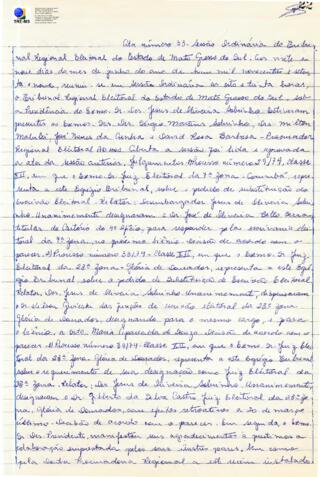 TRE-MS
Ata número 53. Sessão Ordinária do Tribu-
nal Regional Eleitoral do Estado de Mato Grosso do Sul. Aos vinte e
nove dias do mês de junho do ano de hum mil novecentos e seten-
ta e nove, reuniu-se em sessão ordinária às oito e trinta horas,
o Tribunal Regional Eleitoral do Estado de Mato Grosso do Sul, sob
a Presidência do Exmo. Sr. Des. Jesus de Oliveira Sobrinho. Estiveram
presentes os Exmos. Srs. Drs. Sérgio Martins Sobrinho, Drs. Milton
Malulei, José Nunes da Cunha e David Rosa Barbosa - Procurador
Regional Eleitoral. Aberta a sessão foi lida e aprovada
a ata da sessão anterior. Julgamentos: Processo número 29/79, classe
XII, em que o Exmo. Sr. Juiz Eleitoral da 7ª zona - Corumbá, repre-
senta a este Egrégio Tribunal, sobre o pedido de substituição do
Escrivão Eleitoral. Relator: Desembargador Jesus de Oliveira Sobri-
nho. Unanimemente designaram o Sr. José de Oliveira
titular do Cartório do 4º Ofício, para responder pela escrivania elei-
toral da 7ª zona, no próximo biênio. Decisão de acordo com o
parecer. 2) Processo número 30/79 - Classe XII, em que o Exmo. Sr. Juiz
Eleitoral da 28ª zona - Glória de Dourados, representa a este Egré-
gio Tribunal sobre o pedido de Substituição do Escrivão Eleitoral.
Relator, Des. Jesus de Oliveira Sobrinho. Unanimemente, dispensaram
o Sr. das funções de escrivão eleitoral da 28ª zona
Glória de Dourados, designando para o mesmo cargo, e para
o biênio, a srta. Maria Aparecida de Souza. Decisão de acordo com o
parecer. 3) Processo número 34/79 - Classe XII, em que o Exmo. Sr. Juiz Elei-
toral da 28ª zona, Glória de Dourados, representa a este Egrégio Tribunal
sobre o requerimento de sua designação como Juiz Eleitoral da
28ª zona. Relator: Des. Jesus de Oliveira Sobrinho. Unanimemente,
designaram o Dr. Gilberto da Silva Castro Juiz Eleitoral da 28ª zo-
na, Glória de Dourados, com efeitos retroativos a 20 de março
último. Decisão de acordo com o parecer. Em seguida, o Exmo.
Sr. Des. Presidente, manifestou seus agradecimentos a
colaboração emprestada pelos seus ilustres pares, bem como
pela Douta Procuradoria Regional a este recém instalado